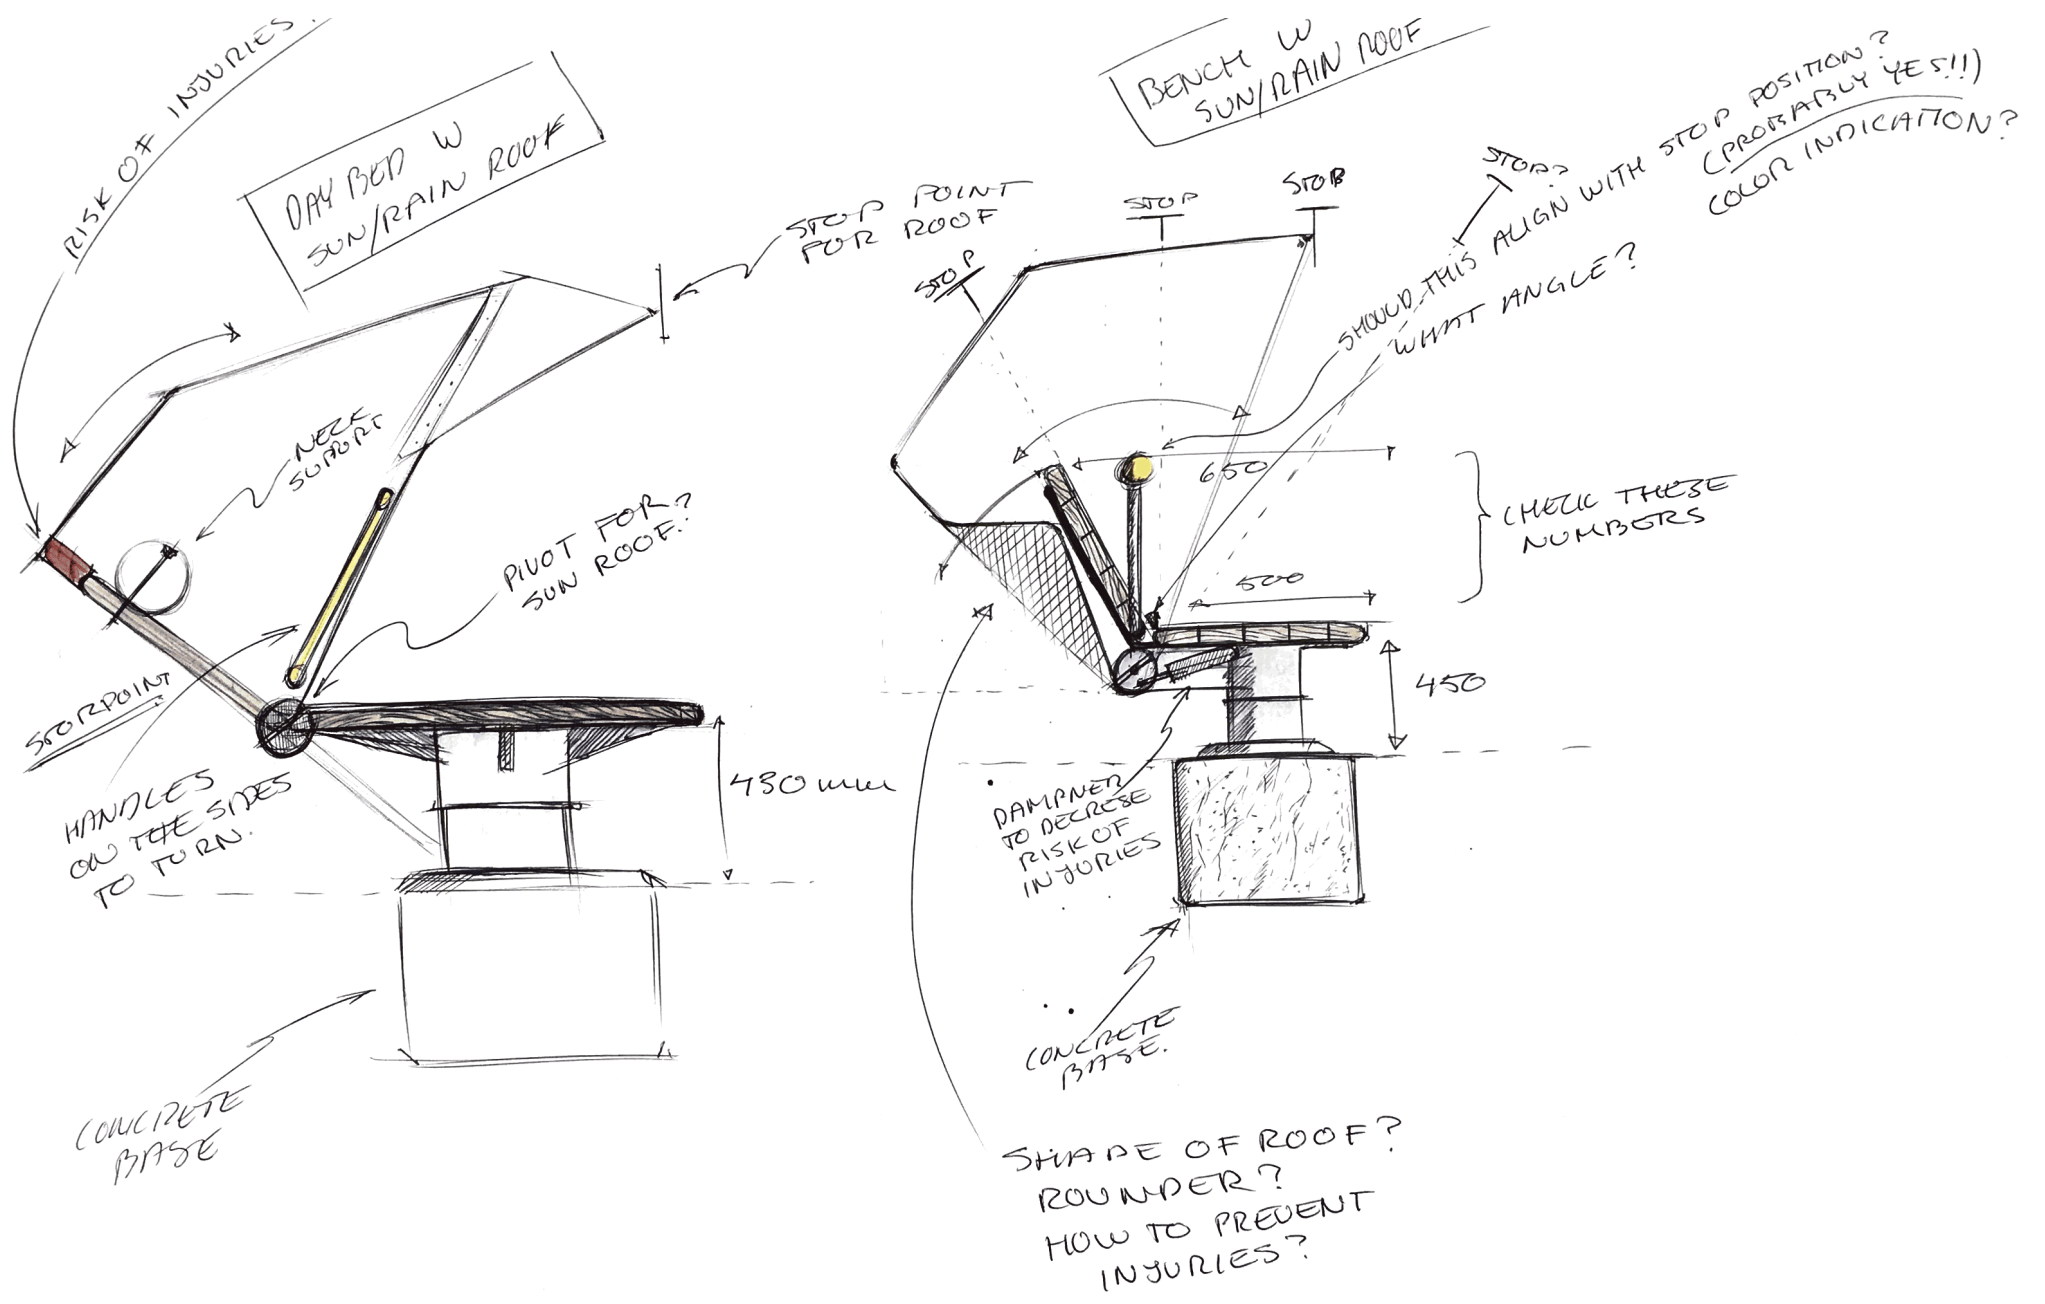 RISK OF INJURIES.
DAY BED W
SUN/RAIN ROOF
STOP POINT
FOR ROOF
NECK
SUPPORT
PIVOT FOR
SUN ROOF?
STORPOINT
HANDLES
ON THE SIDES
TO TURN.
430 mm
CONCRETE
BASE
BENCH W
SUN/RAIN ROOF
STOP
STOP
STOP
STOP?
SHOULD THIS ALIGN WITH STOP POSITION?
(PROBABLY YES!!)
COLOR INDICATION?
WHAT ANGLE?
650
CHECK THESE
NUMBERS
500
450
DAMPNER
TO DECRESE
RISK OF
INJURIES
CONCRETE
BASE.
SHAPE OF ROOF?
ROUNDER?
HOW TO PREVENT
INJURIES?